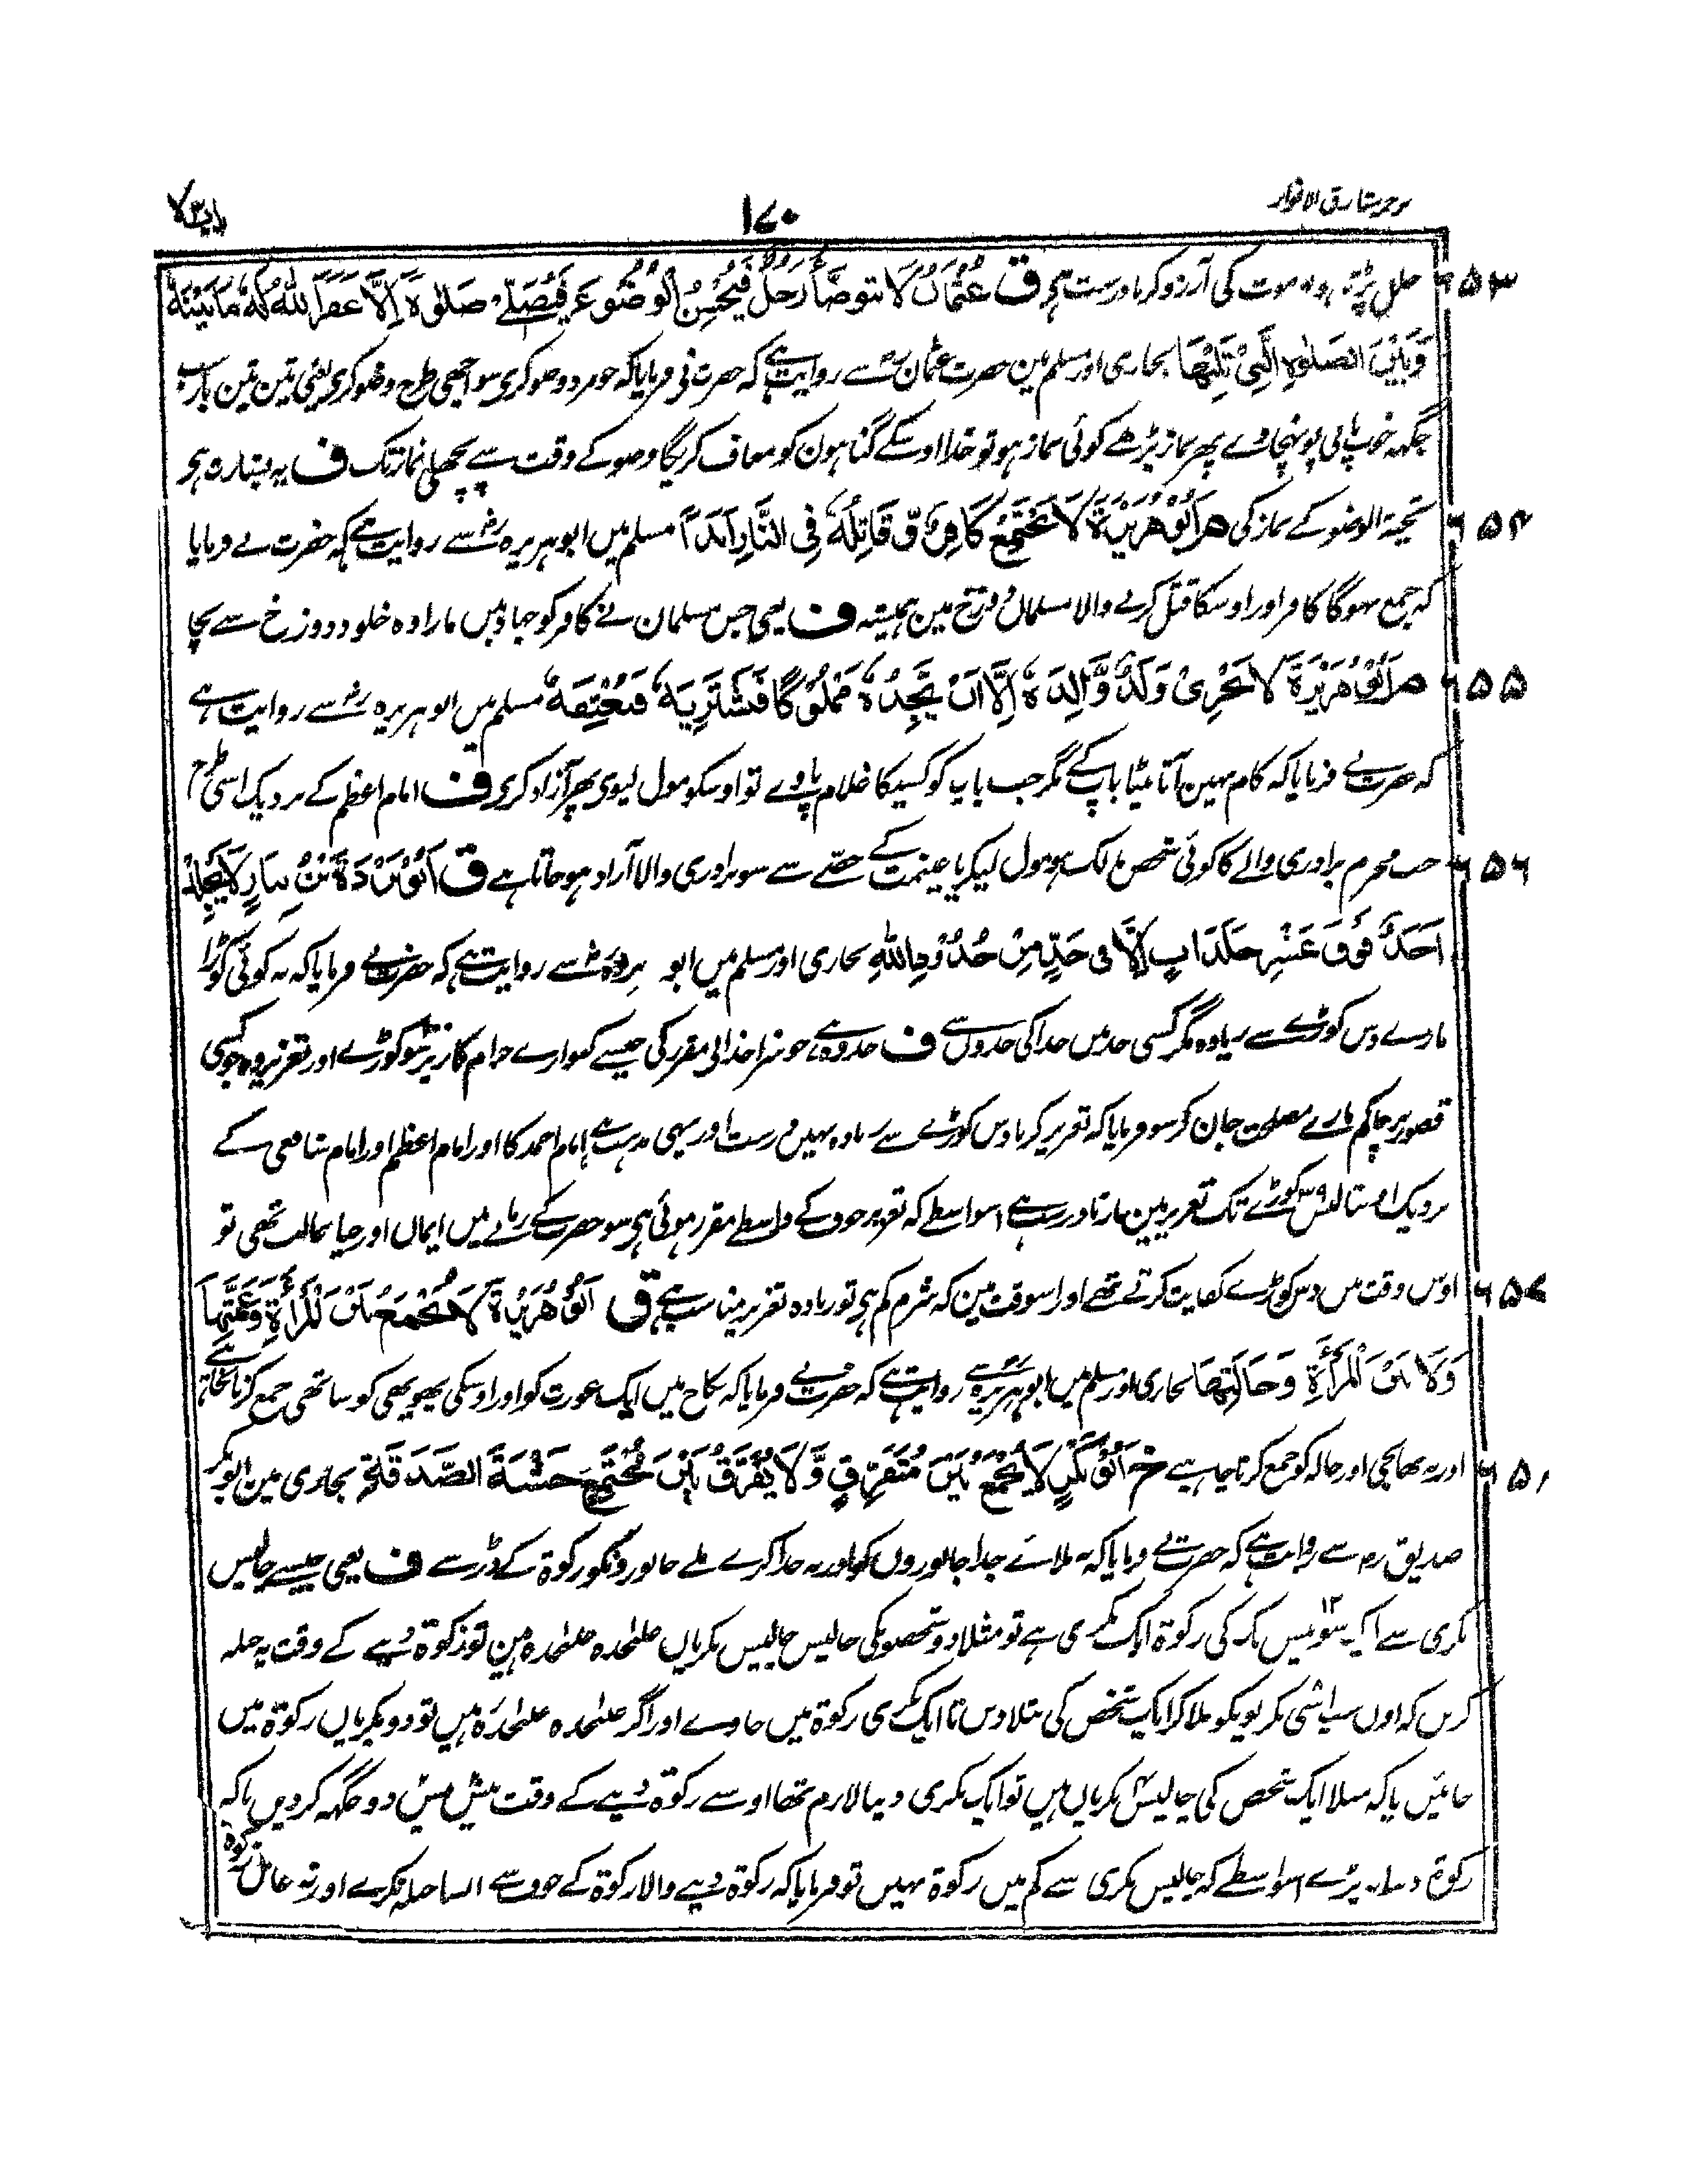 ترجمہ مشارق الانوار
۱۷۰
باب ۳ لا
۶۵۳ خلل پڑتا ہو وہ موت کی آرزو کرنا درست ہی ق عُثْمَانُ لَا يَتَوَضَّأُ رَجُلٌ فَيُحْسِنُ الْوُضُوءَ فَيُصَلِّي صَلٰوةً اِلَّا غَفَرَ اللّٰهُ لَهٗ مَا بَيْنَهٗ
وَبَيْنَ الصَّلٰوةِ الَّتِيْ تَلِيْهَا بخاری اور مسلم مین حضرت عثمان رض سے روایت ہے کہ حضرت نی فرمایا کہ جو مرد وضو کری سو اچھی طرح وضو کری یعنی تین تین بار سب
جگہہ خوب پانی پہونچا دے پھر نماز پڑھے کوئی نماز ہو تو خدا اوسکے گناہون کو معاف کریگا وضو کے وقت سے پچھلی نماز تک ف یہ بشارت ہی
۶۵۴ تحیۃ الوضو کے نماز کی م اَبُوْ هُرَيْرَةَ لَا يَجْتَمِعُ كَافِرٌ وَّ قَاتِلُهٗ فِي النَّارِ اَبَدًا مسلم میں ابو ہریرہ رض سے روایت ہے کہ حضرت نے فرمایا
کہ جمع نہوگا کافر اور اوسکا قتل کرنے والا مسلمان دوزخ مین ہمیشہ ف یعنی جس مسلمان نے کافر کو جہاد میں مارا وہ خلود دوزخ سے بچا
۶۵۵ م اَبُوْ هُرَيْرَةَ لَا يَجْزِيْ وَلَدٌ وَّالِدَهٗ اِلَّا اَنْ يَّجِدَهٗ مَمْلُوْكًا فَيَشْتَرِيَهٗ فَيُعْتِقَهٗ مسلم میں ابو ہریرہ رض سے روایت ہے
کہ حضرت نے فرمایا کہ کام نہین آتا بیٹا باپ کے مگر جب باپ کو کسیکا غلام پاوے تو اوسکو مول لیوی پھر آزاد کری ف امام اعظم کے نزدیک اسی طرح
۶۵۶ جب محرم برادری والے کا کوئی شخص مالک ہو مول لیکر یا غنیمت کے حصّے سے سو برادری والا آزاد ہو جاتا ہے ق اَبُوْ بُرْدَةَ بْنُ نِيَارٍ لَا يُجْلَدُ
اَحَدٌ فَوْقَ عَشْرِ جَلَدَاتٍ اِلَّا فِي حَدٍّ مِنْ حُدُوْدِ اللّٰهِ بخاری اور مسلم میں ابو بردہ رض سے روایت ہے کہ حضرت نے فرمایا کہ نہ کوئی کوڑا
مارے دس کوڑے سے زیادہ مگر کسی حد میں خدا کی حدوں سے ف حد وہ ہے جو سزا خدا نی مقرر کی جیسے کنوارے حرام کار پر سو کوڑے اور تعزیر وہ جو کسی
قصور پر حاکم مارے مصلحت جان کر سو فرمایا کہ تعزیر کرنا دس کوڑے سے زیادہ نہیں درست اور یہی مذہب ہے امام احمد کا اور امام اعظم اور امام شافعی کے
نزدیک اونتالیس ۳۹ کوڑے تک تعزیر مین مارنا درست ہے اسواسطے کہ تعزیر خوف کے واسطے مقرر ہوئی ہی سو حضرت کے زمانے میں ایمان اور حیا غالب تھی تو
۶۵۷ اوس وقت میں دس کوڑے کفایت کرتے تھے اور اسوقت مین کہ شرم کم ہی تو زیادہ تعزیر مناسب ہے ق اَبُوْ هُرَيْرَةَ لَا يُجْمَعُ بَيْنَ الْمَرْأَةِ وَعَمَّتِهَا
وَلَا بَيْنَ الْمَرْأَةِ وَخَالَتِهَا بخاری اور مسلم میں ابو ہریرہ رض سے روایت ہے کہ حضرت نے فرمایا کہ نکاح میں ایک عورت کو اور اوسکی پھوپھی کو ساتھی جمع کرنا نچاہئے
۶۵۸ اور نہ بھانجی اور خالہ کو جمع کرنا چاہیے خ اَبُوْ بَكْرٍ لَا يُجْمَعُ بَيْنَ مُتَفَرِّقٍ وَّلَا يُفَرَّقُ بَيْنَ مُجْتَمِعٍ خَشْيَةَ الصَّدَقَةِ بخاری مین ابو بکر
صدیق رض سے روایت ہے کہ حضرت نے فرمایا کہ نہ ملائے جدا جانوروں کو اور نہ جدا کرے ملے جانورونکو زکوۃ کے ڈر سے ف یعنی جیسے چالیس
بکری سے ایک سو بیس تک کی زکوۃ ایک بکری ہے تو مثلا دو شخصونکی چالیس چالیس بکریاں علیٰحدہ علیٰحدہ ہین تو زکوۃ دینے کے وقت یہ حیلہ
کریں کہ اون سب اسّی بکریونکو ملا کر ایک شخص کی بتلا دیں تا ایک بکری زکوۃ میں جاوے اور اگر علیٰحدہ علیٰحدہ ہیں تو دو بکریاں زکوۃ میں
جائیں یا کہ مثلا ایک شخص کی چالیس بکریاں ہیں تو ایک بکری دینا لازم تھا اوسے زکوۃ دینے کے وقت بیس بیس دو جگہہ کردیں تاکہ
زکوۃ دینا نہ پڑے اسواسطے کہ چالیس بکری سے کم میں زکوۃ نہیں تو فرمایا کہ زکوۃ دینے والا زکوۃ کے خوف سے ایسا حیلہ نکرے اور نہ عامل زکوۃ